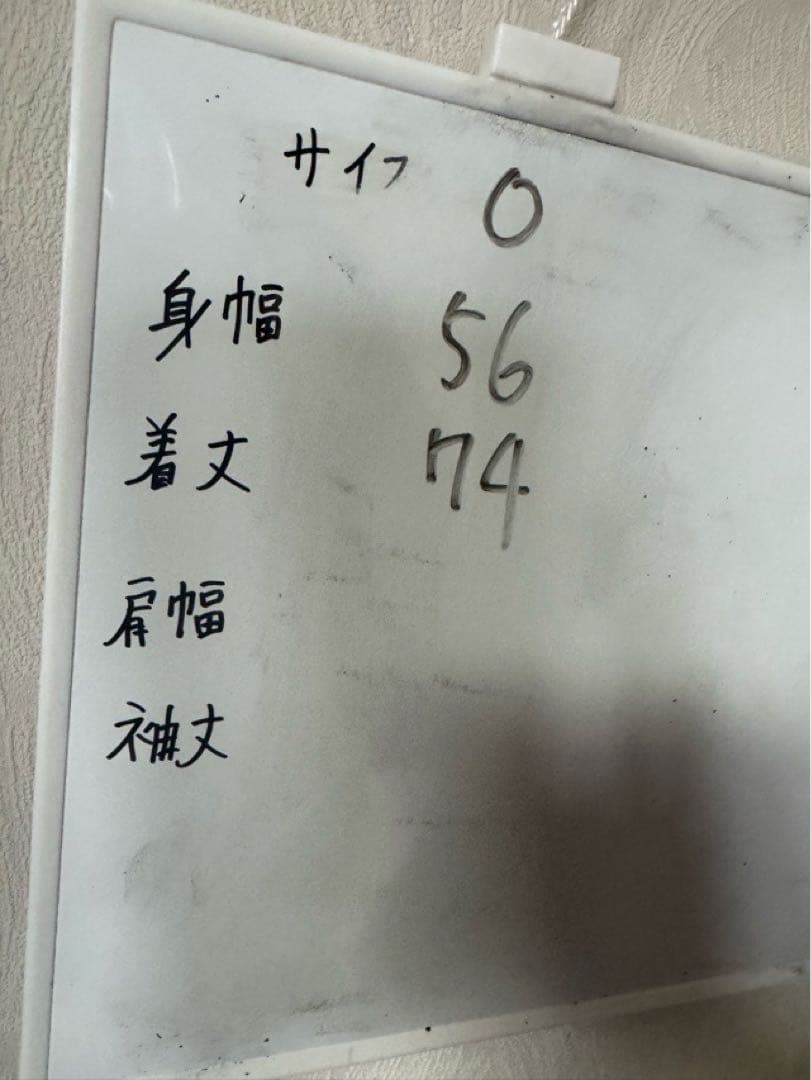 サイフ 0
身幅 56
着丈 74
肩幅
袖丈